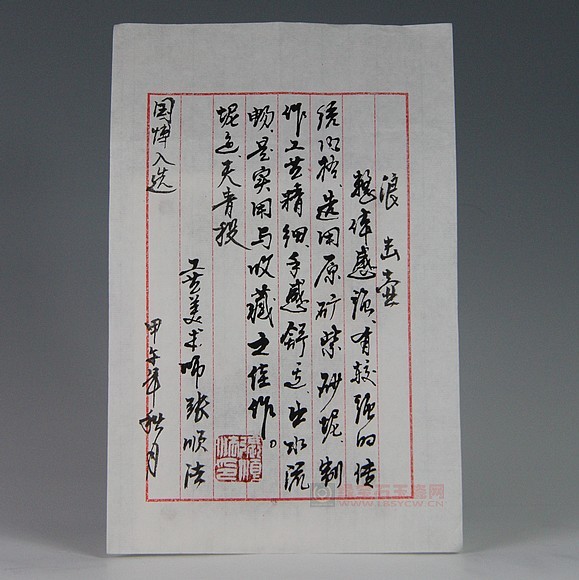 浪击壶
整体感强有较强的传
统风格、选用原矿紫砂泥、制
作工艺精细、手感舒适、出水流
畅、是实用与收藏之佳作。
泥这天青投
工艺美术师张顺法
国博入选
甲午年秋月
WWW.YBSYCW.CN